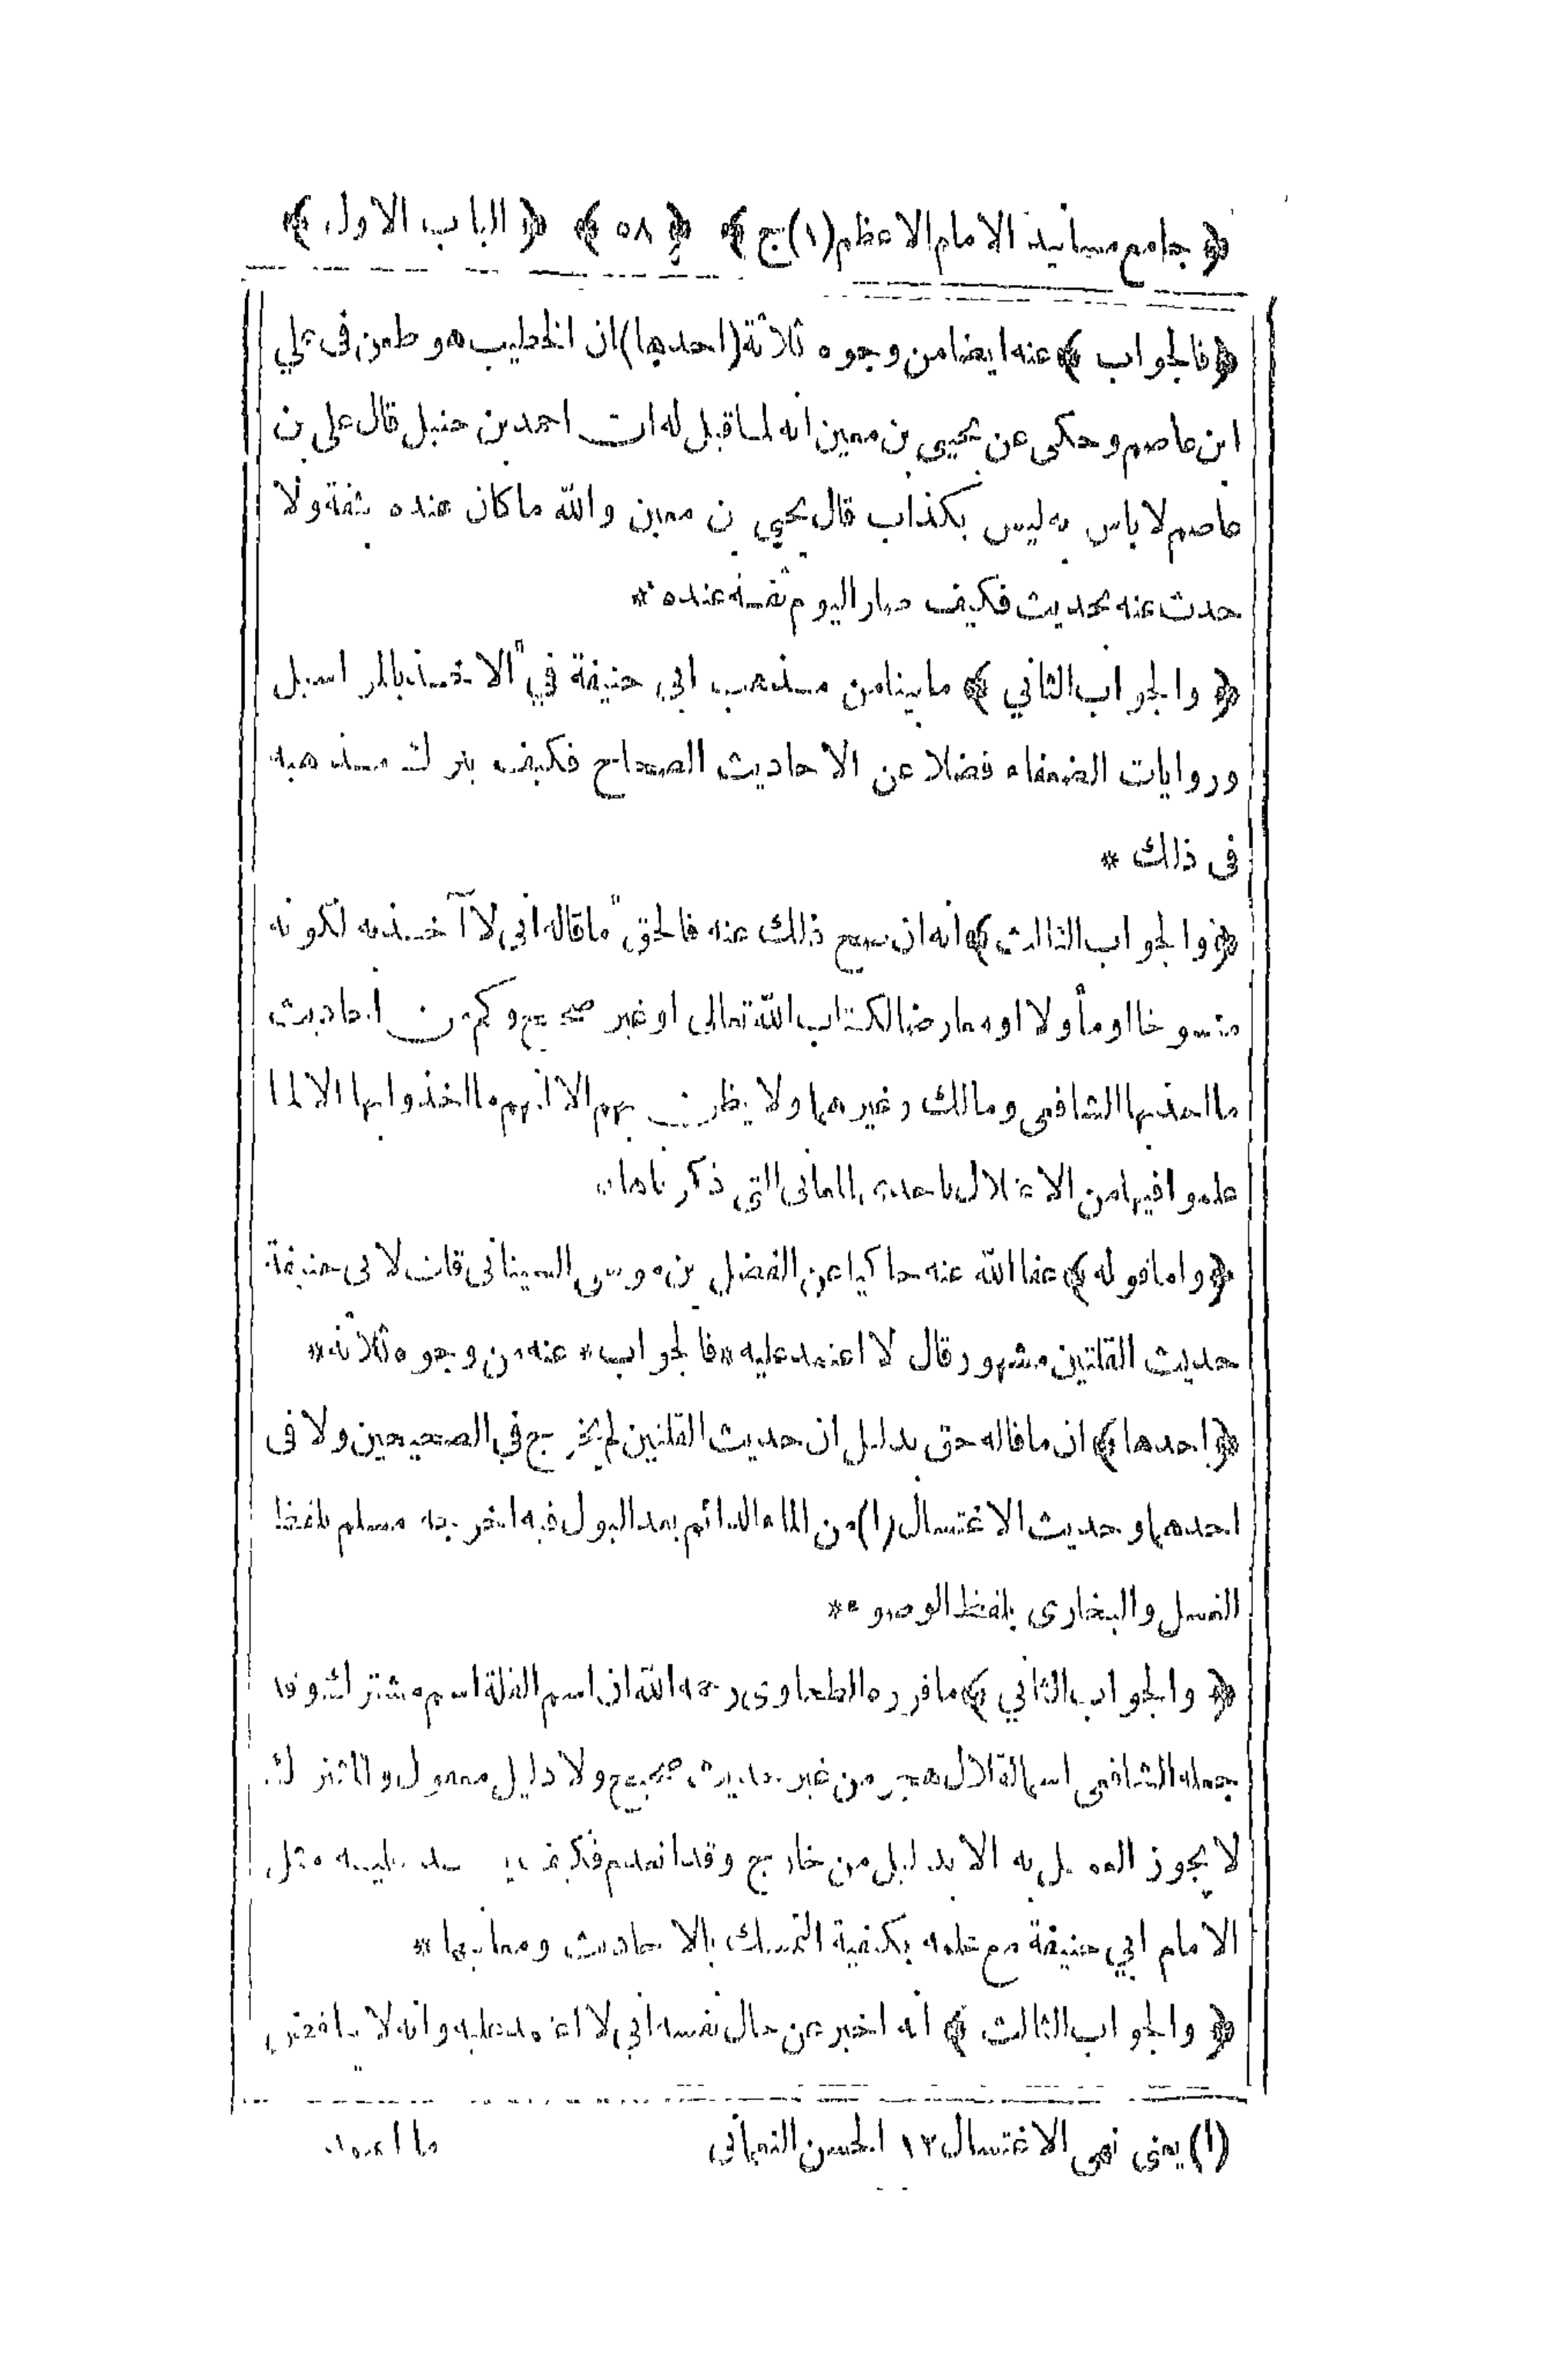 ﴿ جامع مسانيد الامام الاعظم (١) ج ﴾ ﴿ ٥٨ ﴾ ﴿ الباب الاول ﴾
﴿ فالجواب ﴾ عنه ايضا من وجوه ثلاثة (احدها) ان الخطيب هو طعن فى علي
ابن عاصم وحكى عن يحيى بن معين انه لما قيل له ان احمد بن حنبل قال على بن
عاصم لا باس به ليس بكذاب قال يحيي بن معين والله ما كان عنده ثقة ولا
حدث عنه بحديث فكيف صار اليوم ثقة عنده *
﴿ والجواب الثاني ﴾ ما بينا من مذهب ابى حنيفة في الاخذ بالمراسيل
وروايات الضعفاء فضلا عن الاحاديث الصحاح فكيف يترك مذهبه
فى ذلك *
﴿ والجواب الثالث ﴾ انه ان صح ذلك عنه فالحق ما قاله انى لا آخذ به لكونه
منسوخا او مأولا او معارضا لكتاب الله تعالى او غير صحيح وكم من احاديث
ما اخذ بها الشافعى ومالك وغيرهما ولا يظن بهم الا انهم ما اخذوا بها الا لما
علموا فيها من الاعلال باحدى المعانى التى ذكرناها *
﴿ واما قوله ﴾ عفا الله عنه حاكيا عن الفضل بن موسى السينانى قلت لابى حنيفة
حديث القلتين مشهور قال لا اعتمد عليه * فالجواب * عنه من وجوه ثلاثة *
﴿ احدها ﴾ ان ما قاله حق بدليل ان حديث القلتين لم يخرج في الصحيحين ولا فى
احدهما وحديث الاغتسال (١) من الماء الدائم بعد البول فيه اخرجه مسلم بلفظ
الغسل والبخارى بلفظ الوضوء *
﴿ والجواب الثاني ﴾ ما قرره الطحاوى رحمه الله ان اسم القلة اسم مشترك وقد
جعله الشافعى اسما لقلال هجر من غير حديث صحيح ولا دليل معمول والمشترك
لا يجوز العمل به الا بدليل من خارج وقد انعدم فكيف عليه مثل
الامام ابي حنيفة مع علمه بكيفية التمسك بالاحاديث ومعانيها *
﴿ والجواب الثالث ﴾ انه اخبر عن حال نفسه انى لا اعتمد عليه وانه لا
(١) يعنى نهى الاغتسال ١٢ الحسن النعمانى